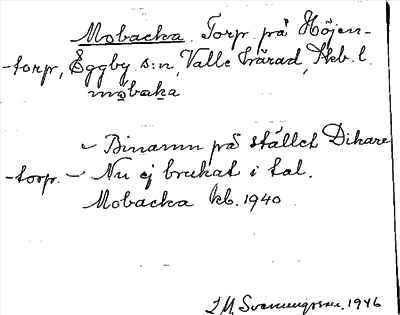 Mobacka. Torp på Höjen-
torp, Eggby s:n, Valle härad, Skb. l.
mo̱baka
– Binamn på stället Dikare
torp. – Nu ej brukat i tal.
Mobacka kb. 1940
1946